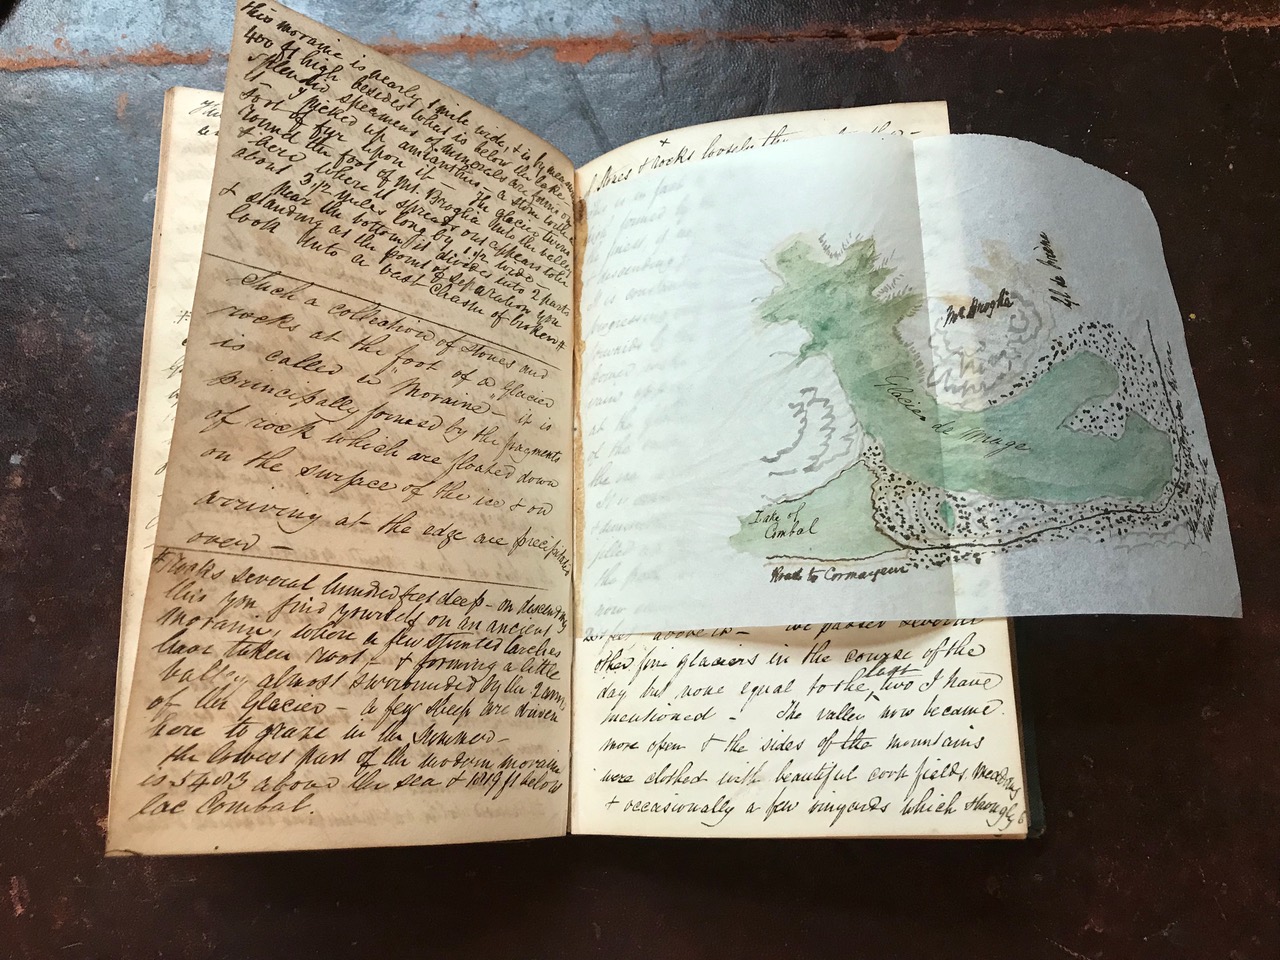 this moraine is nearly 1 mile wide, & is by
400 ft high besides what is below the lake
splendid specimens of minerals are
I picked up amianthus - a stone with a
sort of fur upon it - The glacier
round the foot of Mt. Broglia into the valley
& here where it spreads out appears to be
about 3 1/2 miles long by 1 1/2 wide -
Near the bottom it divides into 2 parts
& standing at the point of separation you
look into a vast chasm of broken #
Such a collection of stones and
rocks at the foot of a glacier
is called a "Moraine - it is
principally formed by the fragments
of rock which are floated down
on the surface of the ice & on
arriving at the edge are precipitated
over -
# rocks several hundred feet deep - on descending
this you find yourself on an ancient
moraine, where a few stunted larches
have taken root - & forming a little
valley almost surrounded by the 2 arms
of the Glacier - a few sheep are driven
here to graze in the Summer -
the lowest part of the modern moraine
is 5403 above the sea & 1819 ft below
Lac Combal.
of stones & rocks loosely
Mt Broglia
Glacier de Miage
Lake of
Combal
Road to Cormayeur
feet above it - we passed several
other fine glaciers in the course of the
day but none equal to the last two I have
mentioned - The valley now became
more open & the sides of the mountains
were clothed with beautiful corn fields meadows
& occasionally a few vinyards which strongly